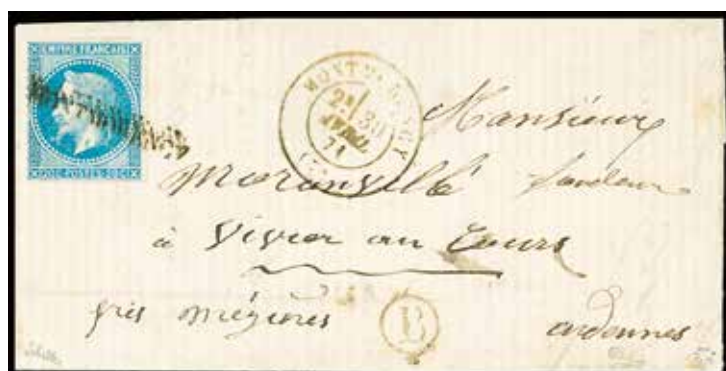 EMPIRE FRANÇAIS
20C POSTES 20C
MONTMORENCY
MONTMORENCY
2E
30
AVRIL
71
Monsieur
Moranvillé fondeur
à Vivier au Cours
près mézières
B
ardennes